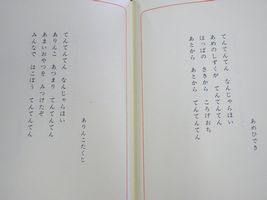 あめひでき
てんてんてん　なんじゃらほい
あめのしずくが　てんてんてん
はっぱの　さきから　ころげおち
あとから　あとから　てんてんてん
ありんこたくと
てんてんてん　なんじゃらほい
ありんこ　あつまり　てんてんてん
あまいおやつを　みつけたぞ
みんなで　はこぼう　てんてんてん